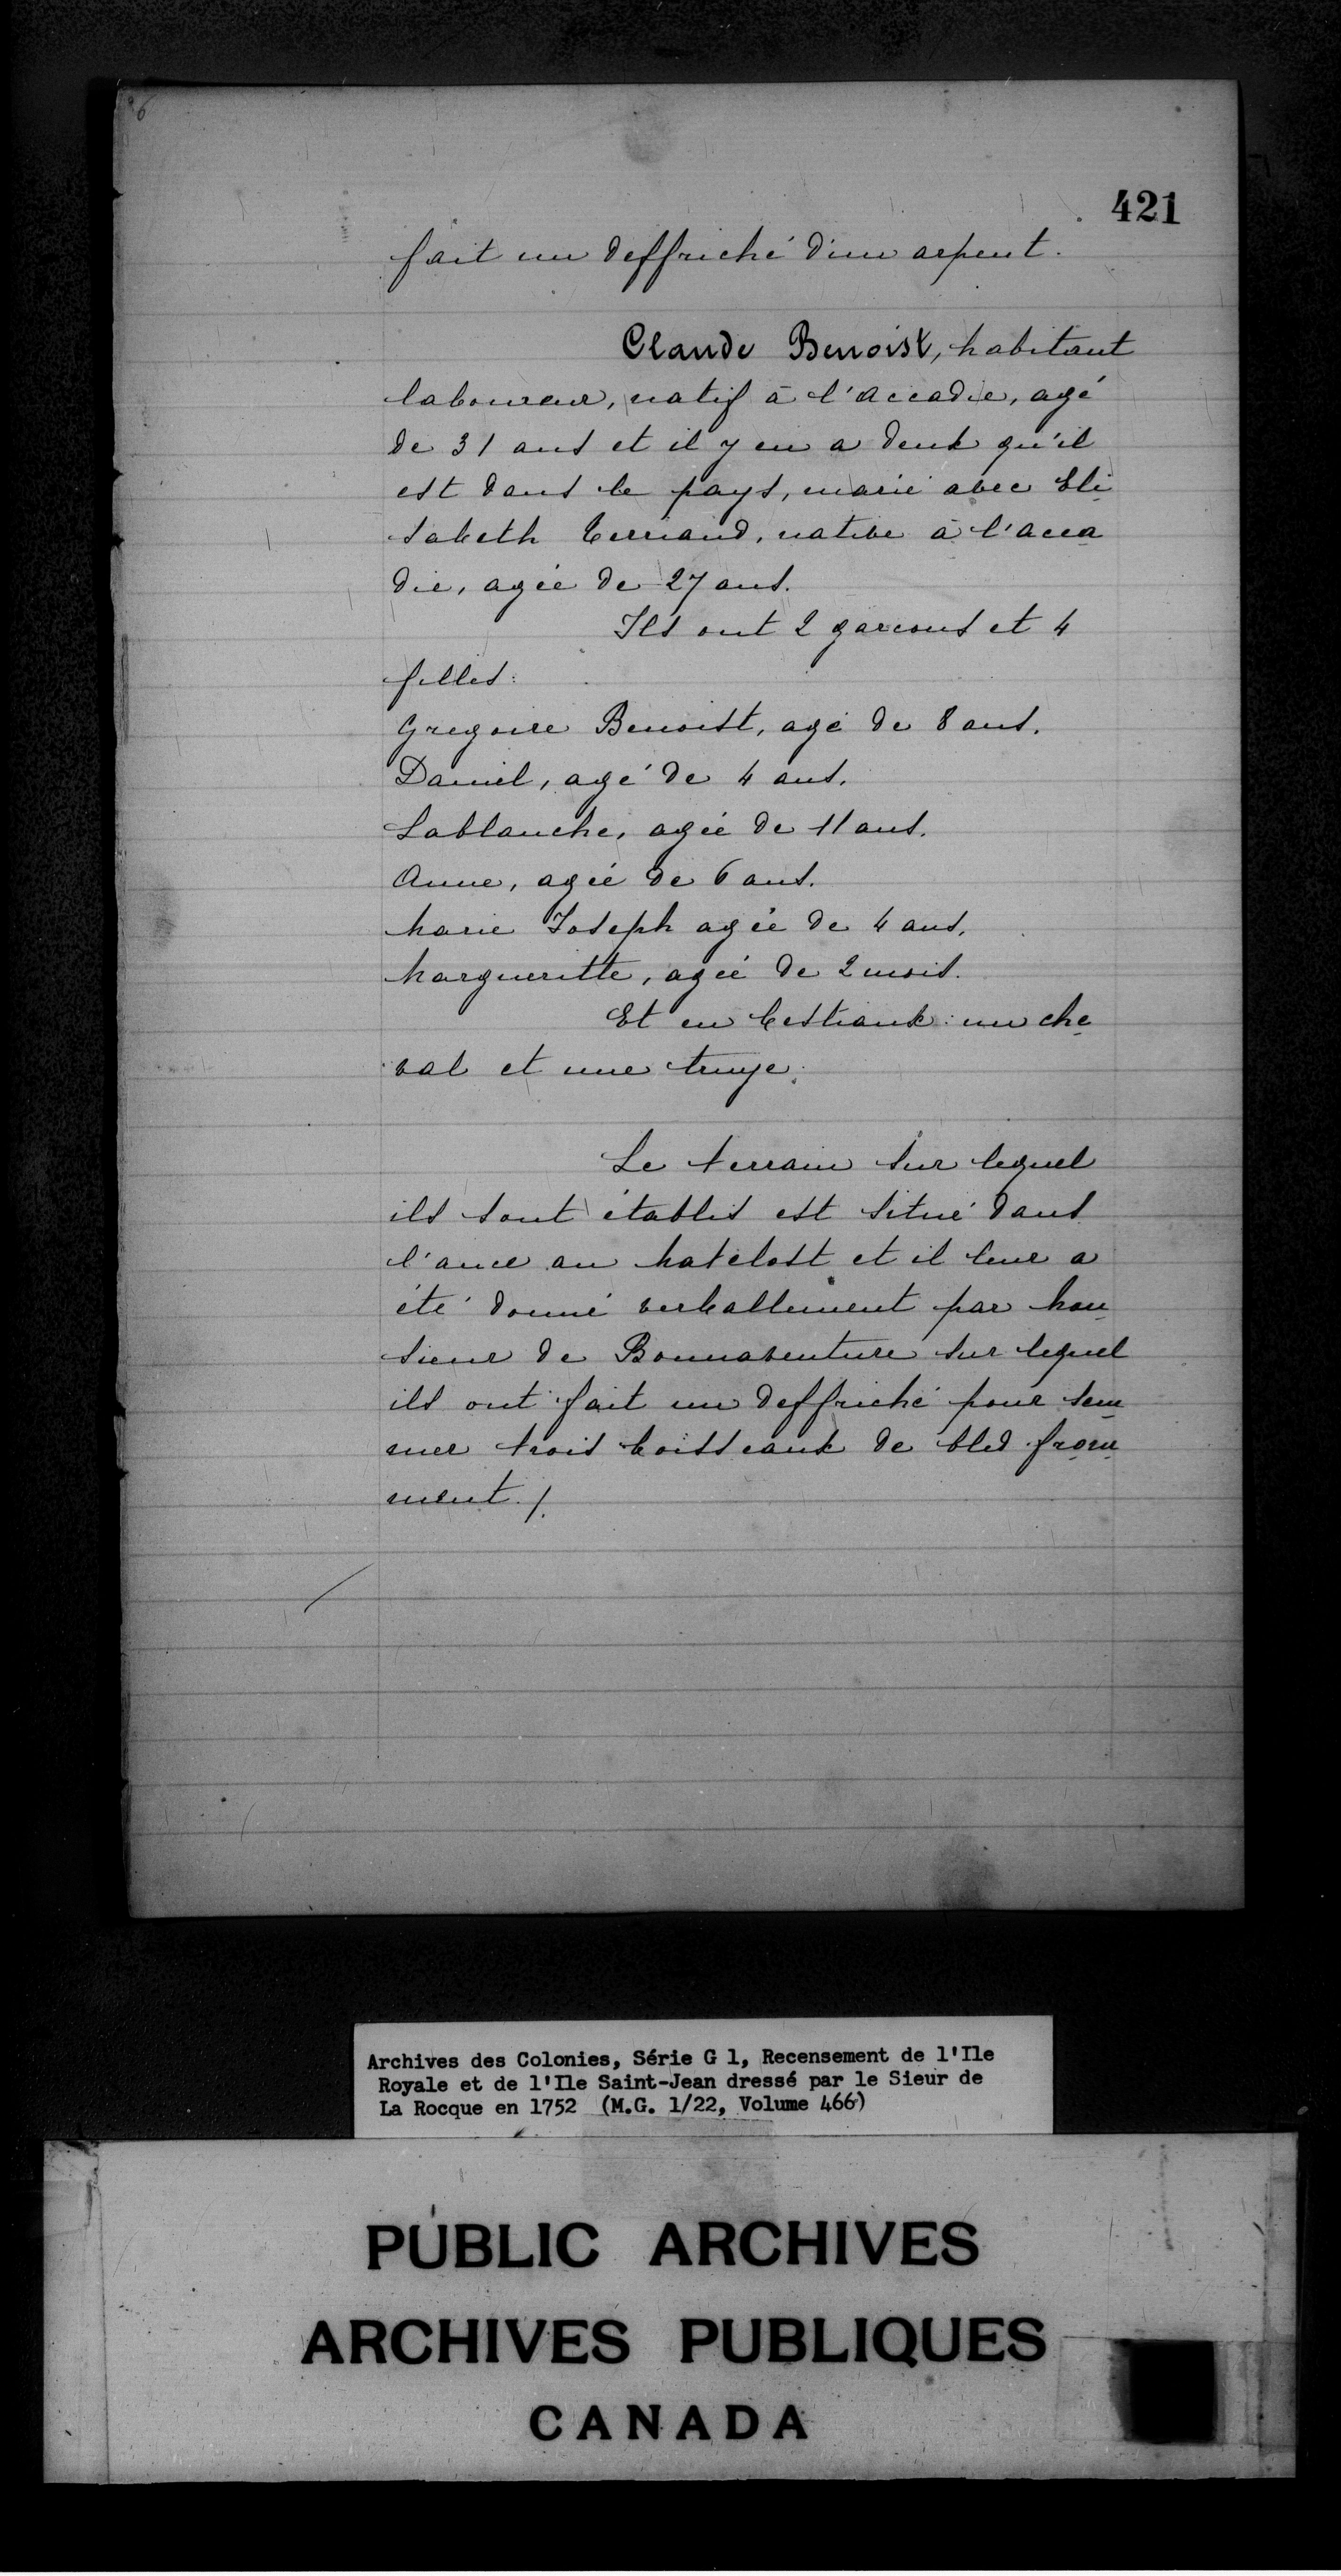 421
fait un deffriché d'un arpent.
Claude Benoist, habitant
laboureur, natif à l'accadie, agé
de 31 ans et il y en a deux qu'il
est dans le pays, marié avec Eli
sabeth Terriaud, native à l'acca
die, agée de 27 ans.
Ils ont 2 garcons et 4
filles:
Gregoire Benoist, agé de 8 ans.
Daniel, agé de 4 ans.
Lablanche, agée de 11 ans.
Anne, agée de 6 ans.
Marie Joseph agée de 4 ans.
Margueritte, agée de 2 mois.
Et en bestiaux: un che
val et une truye.
Le terrain sur lequel
ils sont établis est situé dans
l'ance au Matelost et il leur a
été donné verballement par Mon
sieur de Bonnaventure sur lequel
ils ont fait un deffriché pour sem
mer trois boisseaux de bled from
ment./.
Archives des Colonies, Série G 1, Recensement de l'Ile
Royale et de l'Ile Saint-Jean dressé par le Sieur de
La Rocque en 1752 (M.G. 1/22, Volume 466)
PUBLIC ARCHIVES
ARCHIVES PUBLIQUES
CANADA